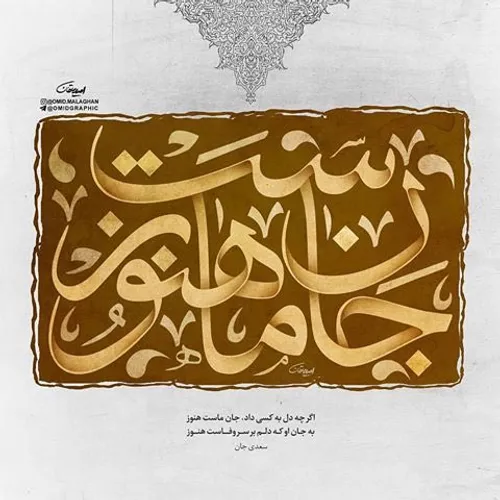 @OMID.MALAGHAN
@OMIDGRAPHIC
جان ماست هنوز
اگرچه دل به کسی داد، جان ماست هنوز
به جان او که دلم بر سر وفاست هنوز
سعدی جان